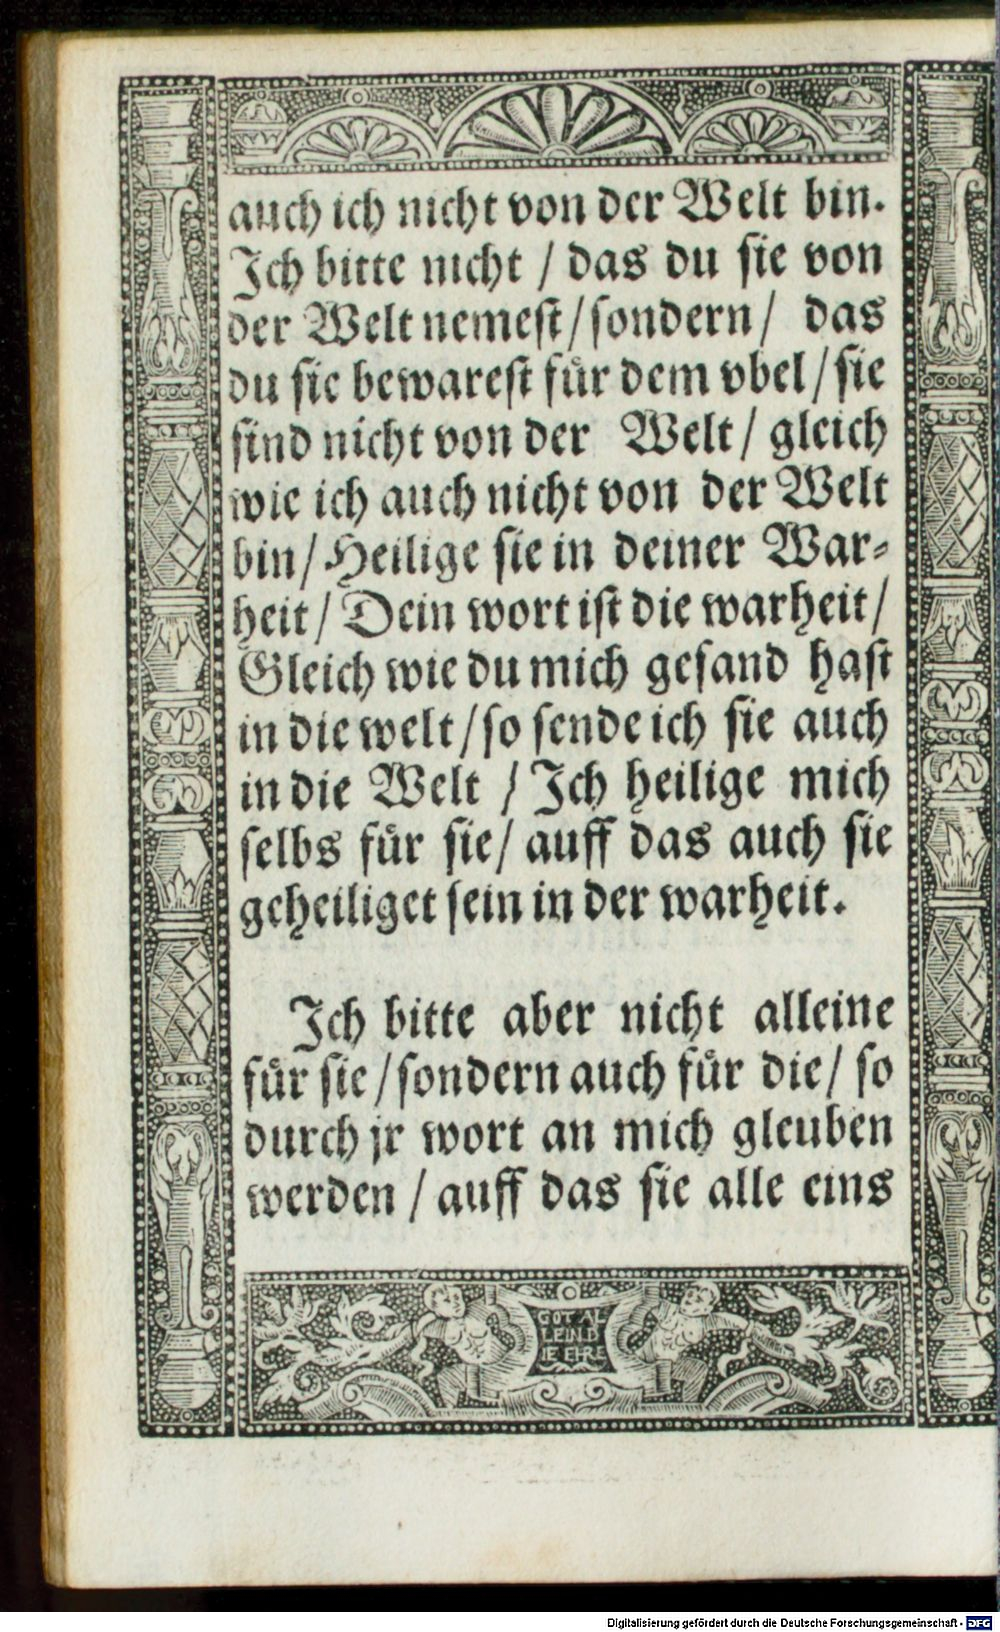 auch ich nicht von der Welt bin.
Ich bitte nicht / das du sie von
der Welt nemest / sondern / das
du sie bewarest fuͤr dem vbel / sie
sind nicht von der Welt / gleich
wie ich auch nicht von der Welt
bin / Heilige sie in deiner War⸗
heit / Dein wort ist die warheit /
Gleich wie du mich gesand hast
in die welt / so sende ich sie auch
in die Welt / Ich heilige mich
selbs fuͤr sie / auff das auch sie
geheiliget sein in der warheit.
Ich bitte aber nicht alleine
fuͤr sie / sondern auch fuͤr die / so
durch jr wort an mich gleuben
werden / auff das sie alle eins
GOT AL
LEIN D
IE EHRE
Digitalisierung gefördert durch die Deutsche Forschungsgemeinschaft - DFG